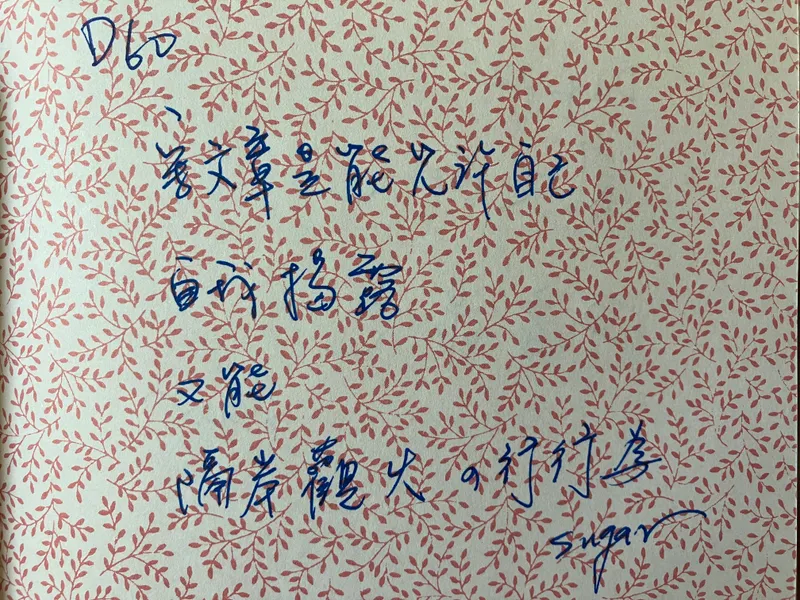 D60
寫文章是能允許自己
自我揭露
又能
隔岸觀火の行行為
sugar